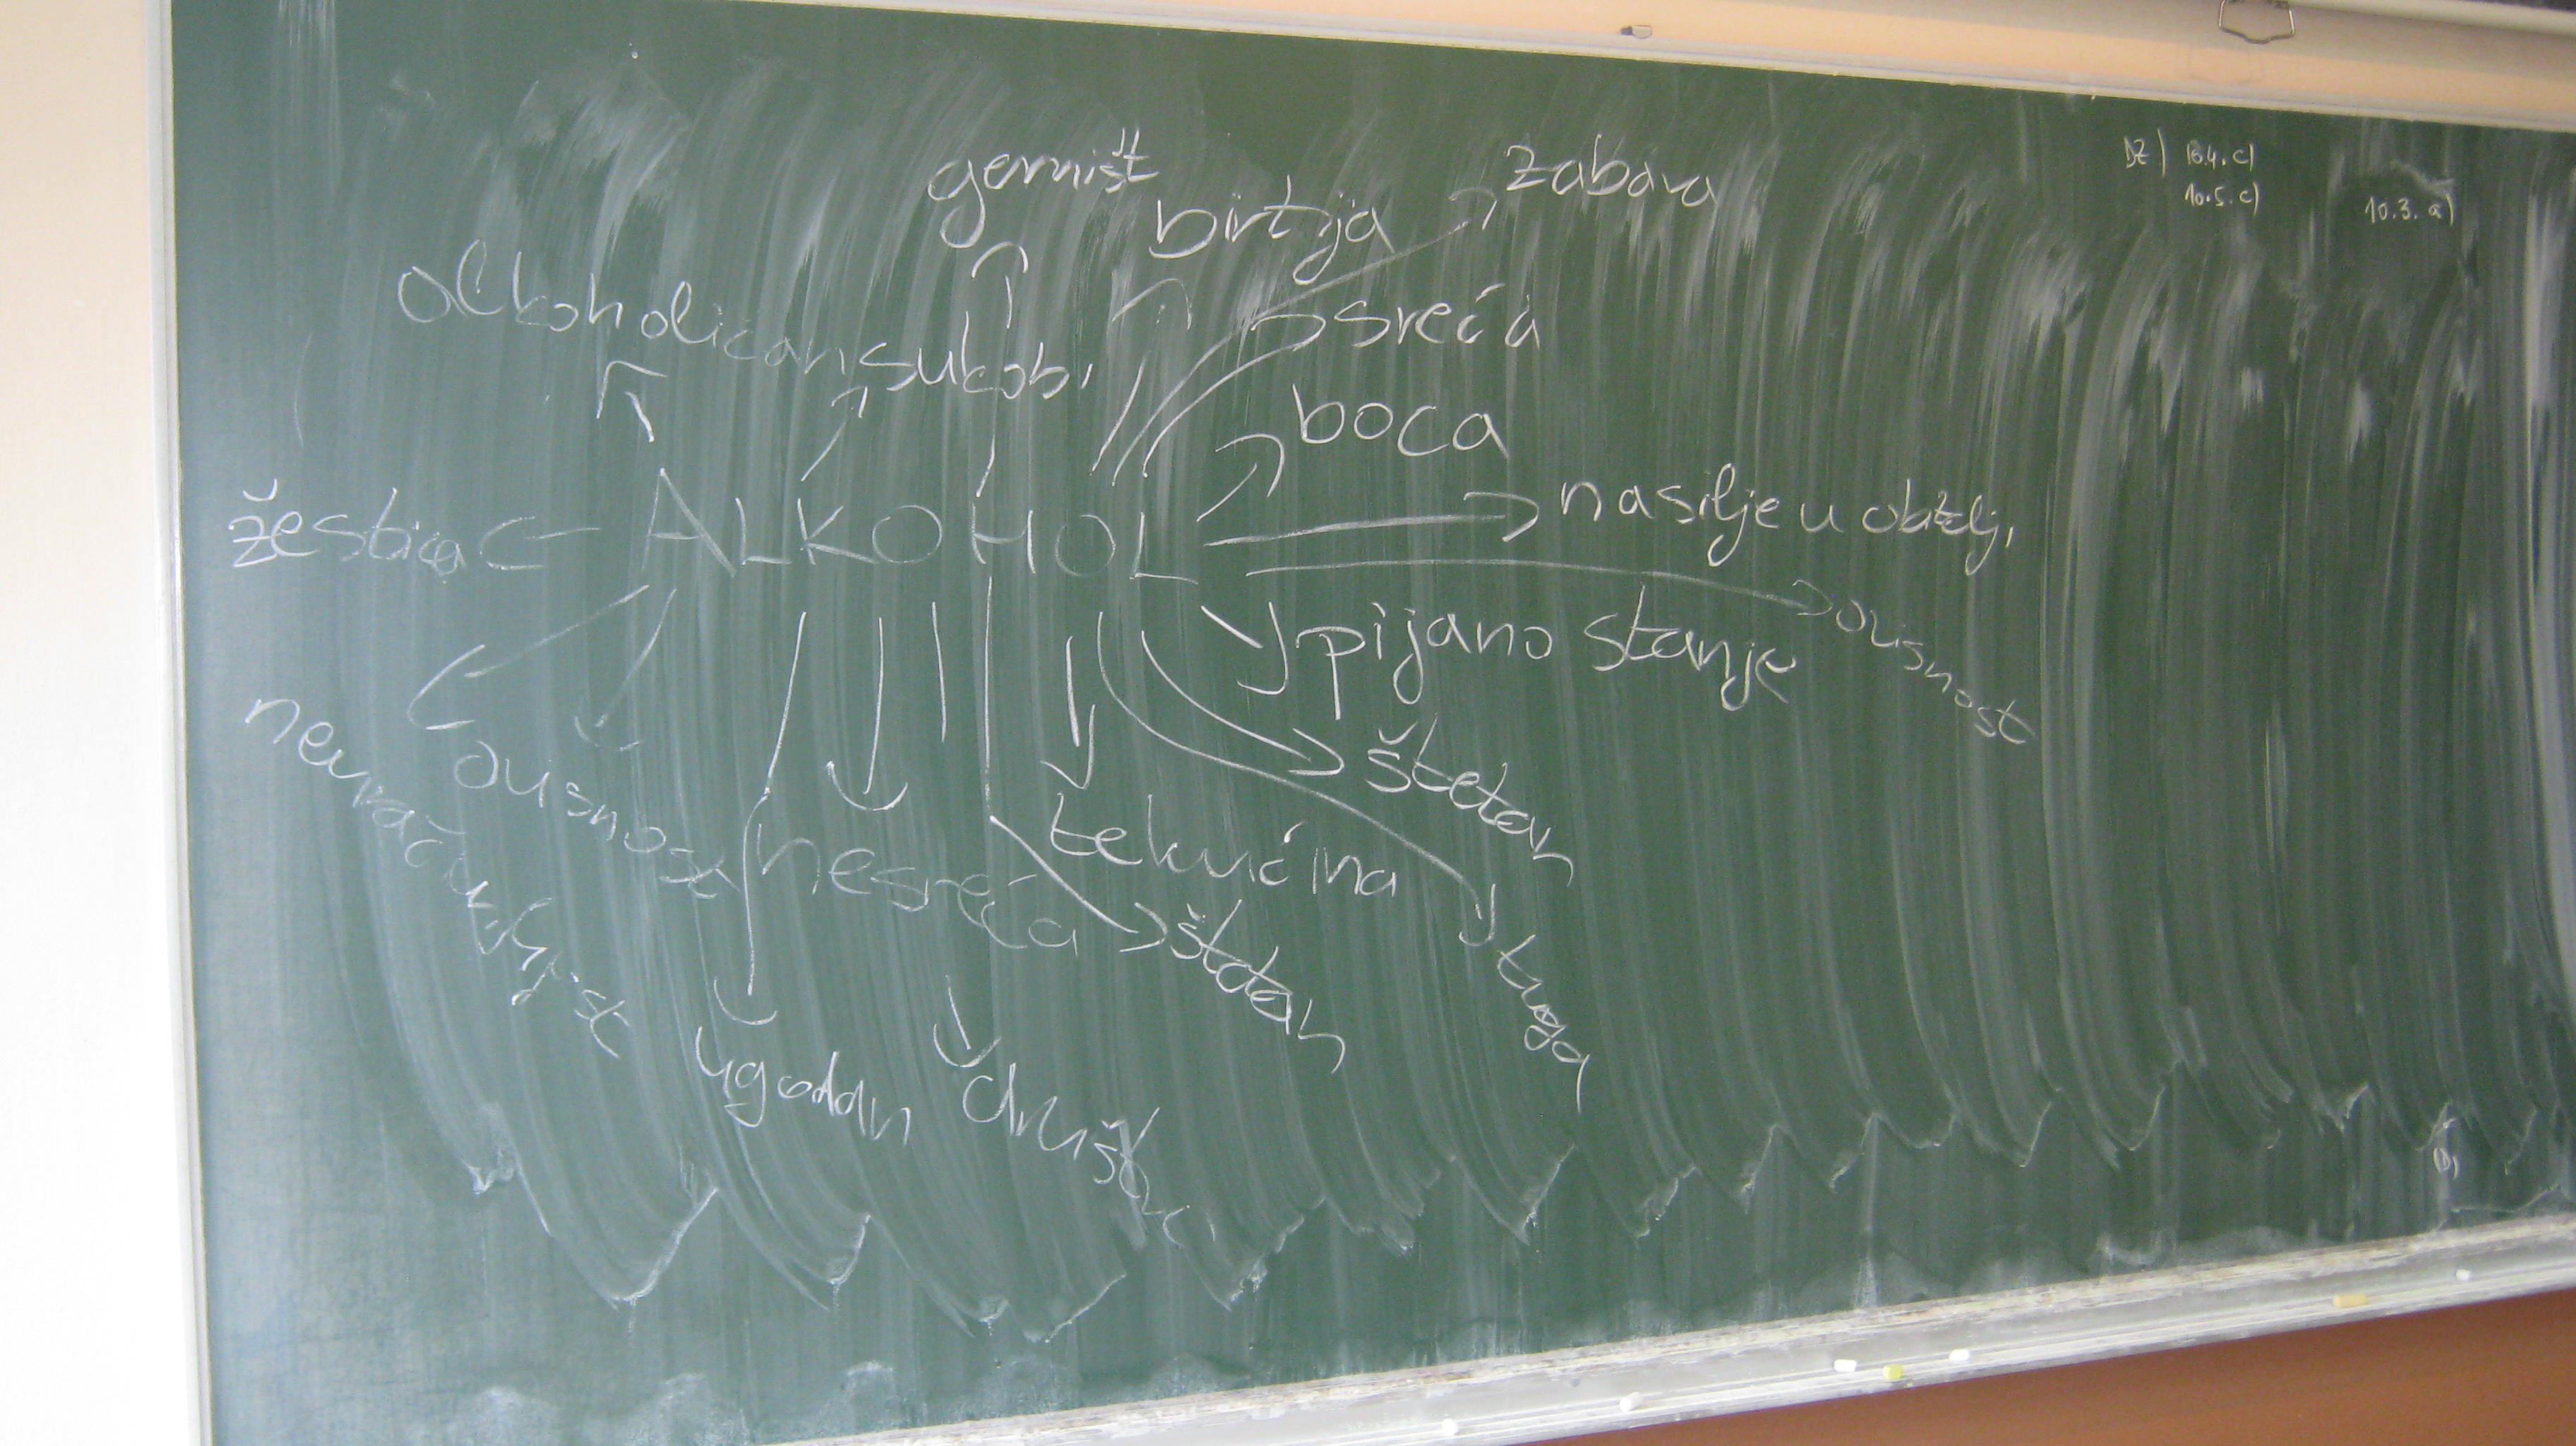 gemišt
zabava
birtija
DZ) 10.4. c)
10.5. c)
10.3. a)
alkoholičan
sreća
sukobi
boca
žestica
ALKOHOL
nasilje u obitelji
pijano stanje
ovisnost
ovisnost
štetan
nesreća
tekućina
štetan
tuga
ugodan